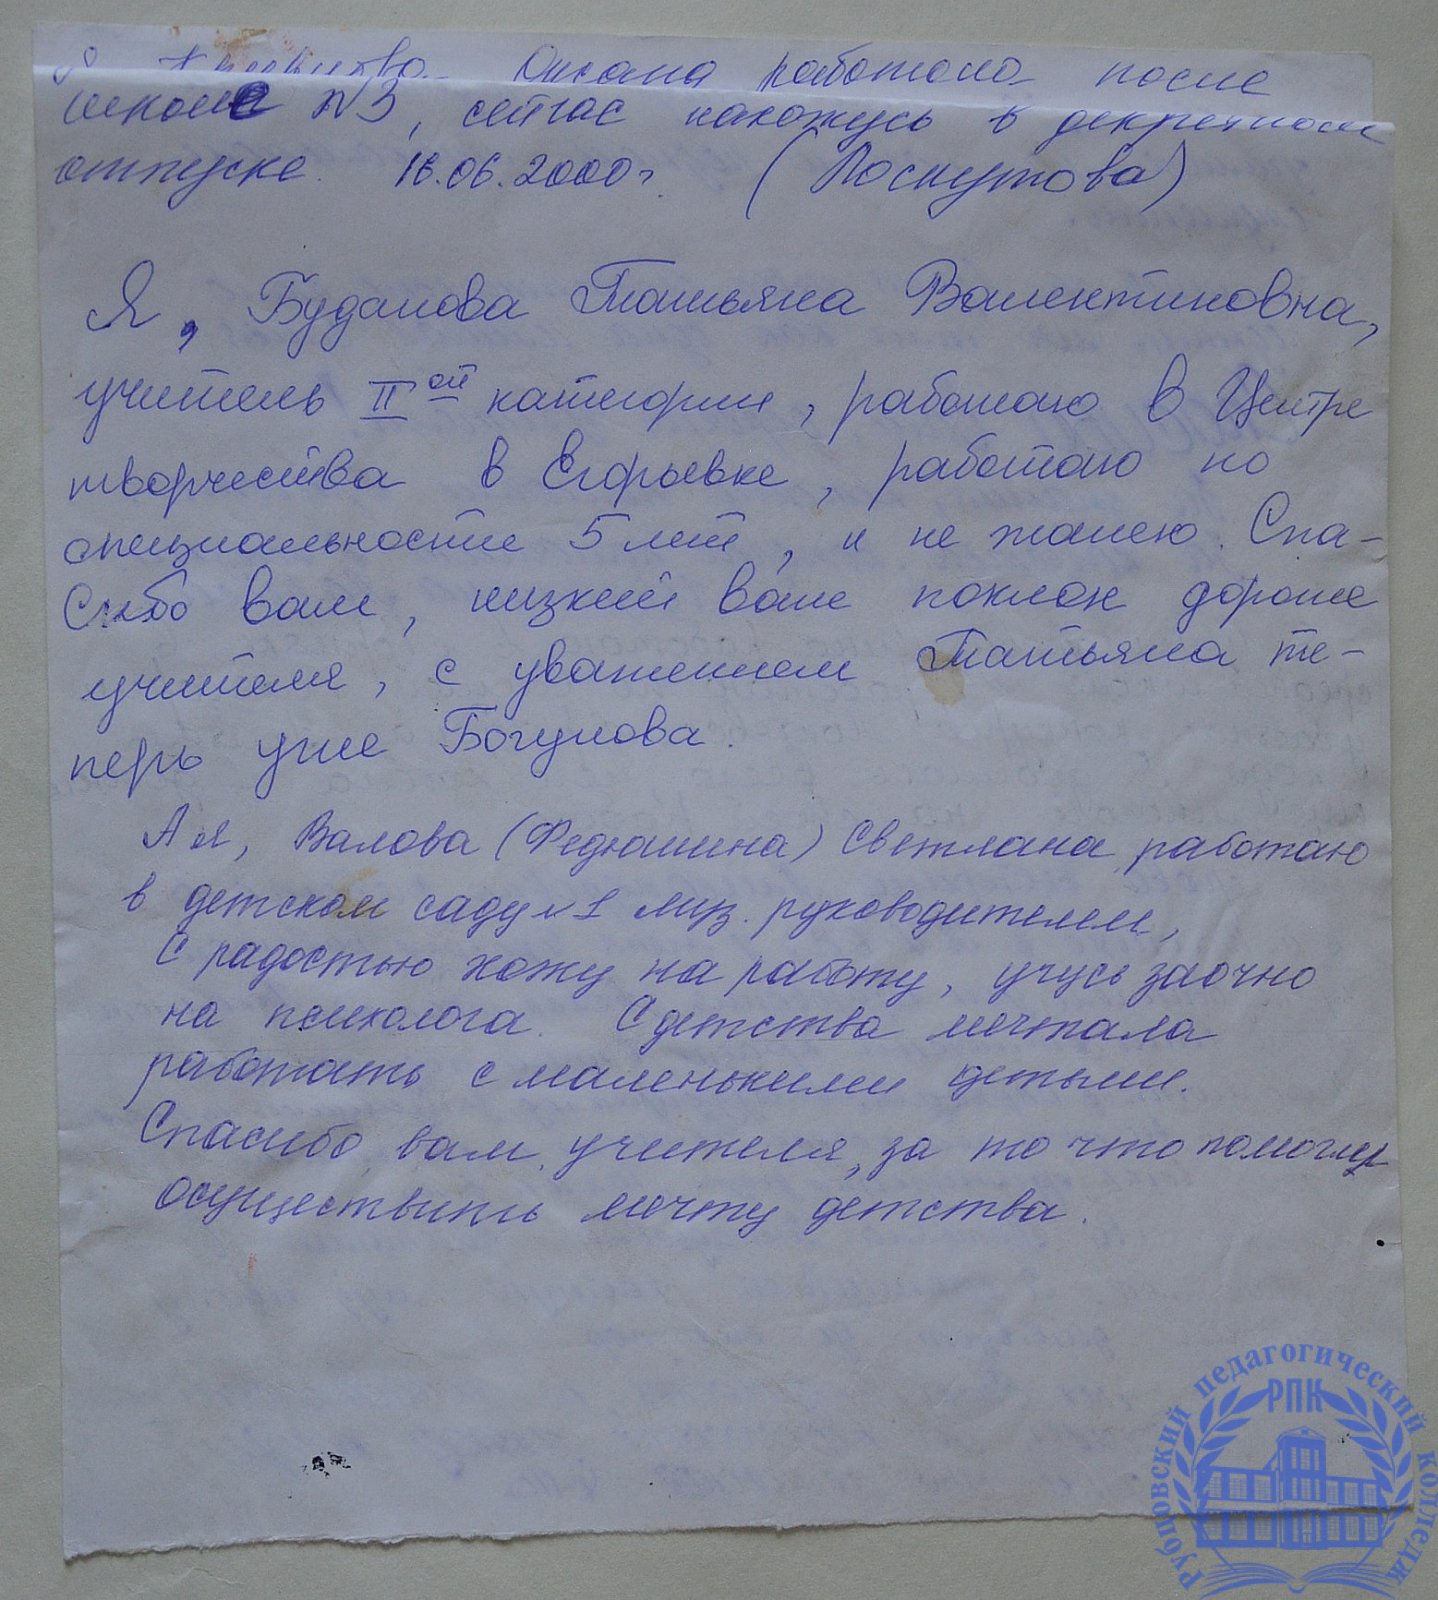 Я Оксана работала после
школе N3, сейчас нахожусь в декретном
отпуске. 16.06.2000г. (Лоскутова)
Я, Буданова Татьяна Валентиновна,
учитель II ой категории, работаю в Центре
творчества в Егорьевке, работаю по
специальности 5 лет, и не жалею. Спа-
сибо вам, низкий вам поклон дорогие
учителя, с уважением Татьяна те-
перь уже Богунова.
А я, Валова (Федюшина) Светлана работаю
в детском саду №1 муз. руководителем,
С радостью хожу на работу, учусь заочно
на психолога. С детства мечтала
работать с маленькими детьми.
Спасибо вам, учителя, за то что помогли
осуществить мечту детства.
Рубцовский педагогический колледж
РПК